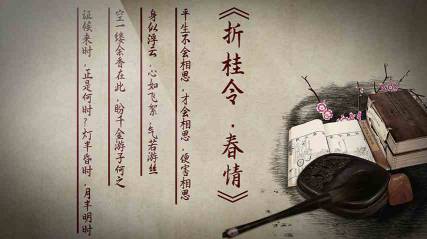 《折桂令·春情》
平生不会相思，才会相思，便害相思
身似浮云，心如飞絮，气若游丝
空一缕余香在此，盼千金游子何之
证候来时，正是何时？灯半昏时，月半明时